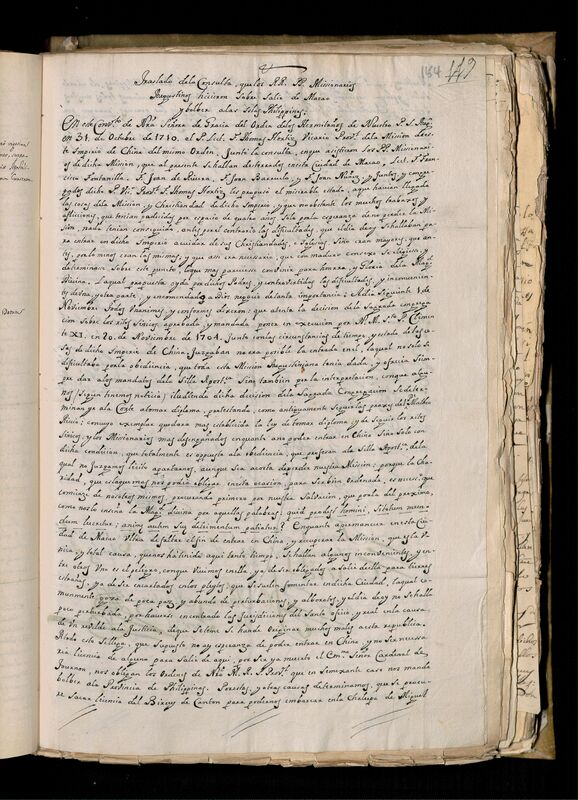 184 449
Traslado dela Consulta, quelos RR. PP. Missionarios
Augustinos hicieron Sobre Salir de Macao
y bolber alas Islas Philippinas.
En este Convto. de Nra Señora de Gracia del Orden delos Hermitaños de Nuestro P. S. Augn.
en 31. de Octubre de 1710. el P. Lect. F. Thomas Hortiz, Vicario Provl. dela Mission deeste
Imperio de China del mismo Orden, Juntò de consulta, enque asistieron los PP. Missionari-
os de dicha Mission, que al presente Sehallan desterrados enesta Ciudad de Macao, Lect. F. Fran-
cisco Fontanilla, F. Juan de Rivera, F. Juan Barruelo, y F. Juan Nuñez, y Juntos, y congre-
gados dicho P. Vico. Provl. F. Thomas Hortiz, les propuso el miserable estado, aque havian llegado
las cosas dela Mission, y Christiandad de dicho Imperio, y que no obstante los muchos trabaxos, y
afflicciones, que tenian padecidas por espacio de quatro años Solo porla esperanza de no perder la Mi-
sion, nada tenian conseguido, antes porel contrario las dificultades, que eldia deoy Sehallaban pa-
ra entrar en dicho Imperio acuidar de sus Christiandades, e Iglesias, Sino eran mayores, que an-
tes, porlo menos eran las mismas, y que assi era necessario, que con maduro consexo Se eligiesse, y
determinasse Sobre este punto, loque mas pareciesse convenir para honrra, y Gloria dela Magd.
Divina. Laqual propuesta oyda por dichos Padres, y controvertidas las dificultades, y inconvenien-
tes deuna, y otra parte, y encomendado a Dios negocio de tanta importancia; Aldia Siguiente 1. de
Noviembre todos Vnanimes, y conformes dixeron: que atenta la decision dela Sagrada congrega-
cion Sobre los ritos Sinicos, aprobada, y mandada poner en execucion por N. M. S. P. Clemen-
te XI. en 20. de Noviembre de 1704. Junto conlas circunstancias de tiempo, y estado delas co-
sas de dicho Imperio de China, Juzgaban no era posible la entrada en el, laqual no solo se
dificultaba porla obediencia, que toda esta Mission Augustiniana tenia dada, y ofrecia Siem-
pre dar alos mandatos dela Silla Apostca. Sino tambien por la interpretacion, conque algu-
nos (Segun tenemos noticia) illudiendo dicha decission dela Sagrada Congregacion Sedeter-
minan yr ala Corte atomar diploma, protestando, como antiguamente Seguir las praxes del P. Matheo
Riccio; concuyo exemplar quedara mas establecida la ley de tomar diploma, y de Seguir los ritos
Sinicos, y los Missionarios mas desengañados enquanto ano poder entrar en China Sino Solo con
dicha condicion, que totalmente es oppuesta ala obediencia, que professan ala Silla Apostca. dela
qual no Juzgamos licito apartarnos, aunque Sea acosta deperder nuestra Mission; porque la Cha-
ridad, que estaguerras nos podia obligar enesta ocasion, para Ser bien Ordenada, es necess. que
comience de nosotros mismos, procurando primero por nuestra Salvacion, que porla del proximo,
como noslo enseña la Magd. divina por aquellas palabras: quid prodest homini, Si totum mun-
dum lucretur; animæ autem Suæ detrimentum patiatur? Enquanto apermanecer enesta Ciu-
dad de Macao Ultra de faltar el fin de entrar en China, y recuperar la Mission, que es la V-
nica, y total causa, quenos hatenido aqui tanto tiempo, Se hallan algunos inconvenientes, y en-
tre otros Uno es el peligro, conque Vivimos enella, ya de Ser obligados a Salir deella para tierras
estrañas, ya de Ser encartados enlos pleytos, que Sesuelen fomentar endicha Ciudad, laqual co-
munmente goza de poca paz, y abunda de perturbaciones, y alborotos, y eldia deoy no Sehalla
poco perturbada, por haverse encontrado las Jurisdiciones del Santo oficio, y real enla causa,
de Un rebelde ala Justicia; deque Seteme Sehande Originar muchos males aesta republica.
A todo esto Sellega, que Supuesto no ay esperanza de poder entrar en China, y no Ser necessa-
ria licencia de alguno para Salir de aqui, por Ser ya muerto el Emo. Señor Cardenal de
Tournon, nos obligan los Ordenes de Nro M. R. P. Provl. que en Semexante caso nos manda
bolber ala Provincia de Philippinas. Poresta, y otras causas determinamos, que Se procu-
re Sacar licencia del Birrey de Canton para podernos embarcar enla Chalupa de Miguel